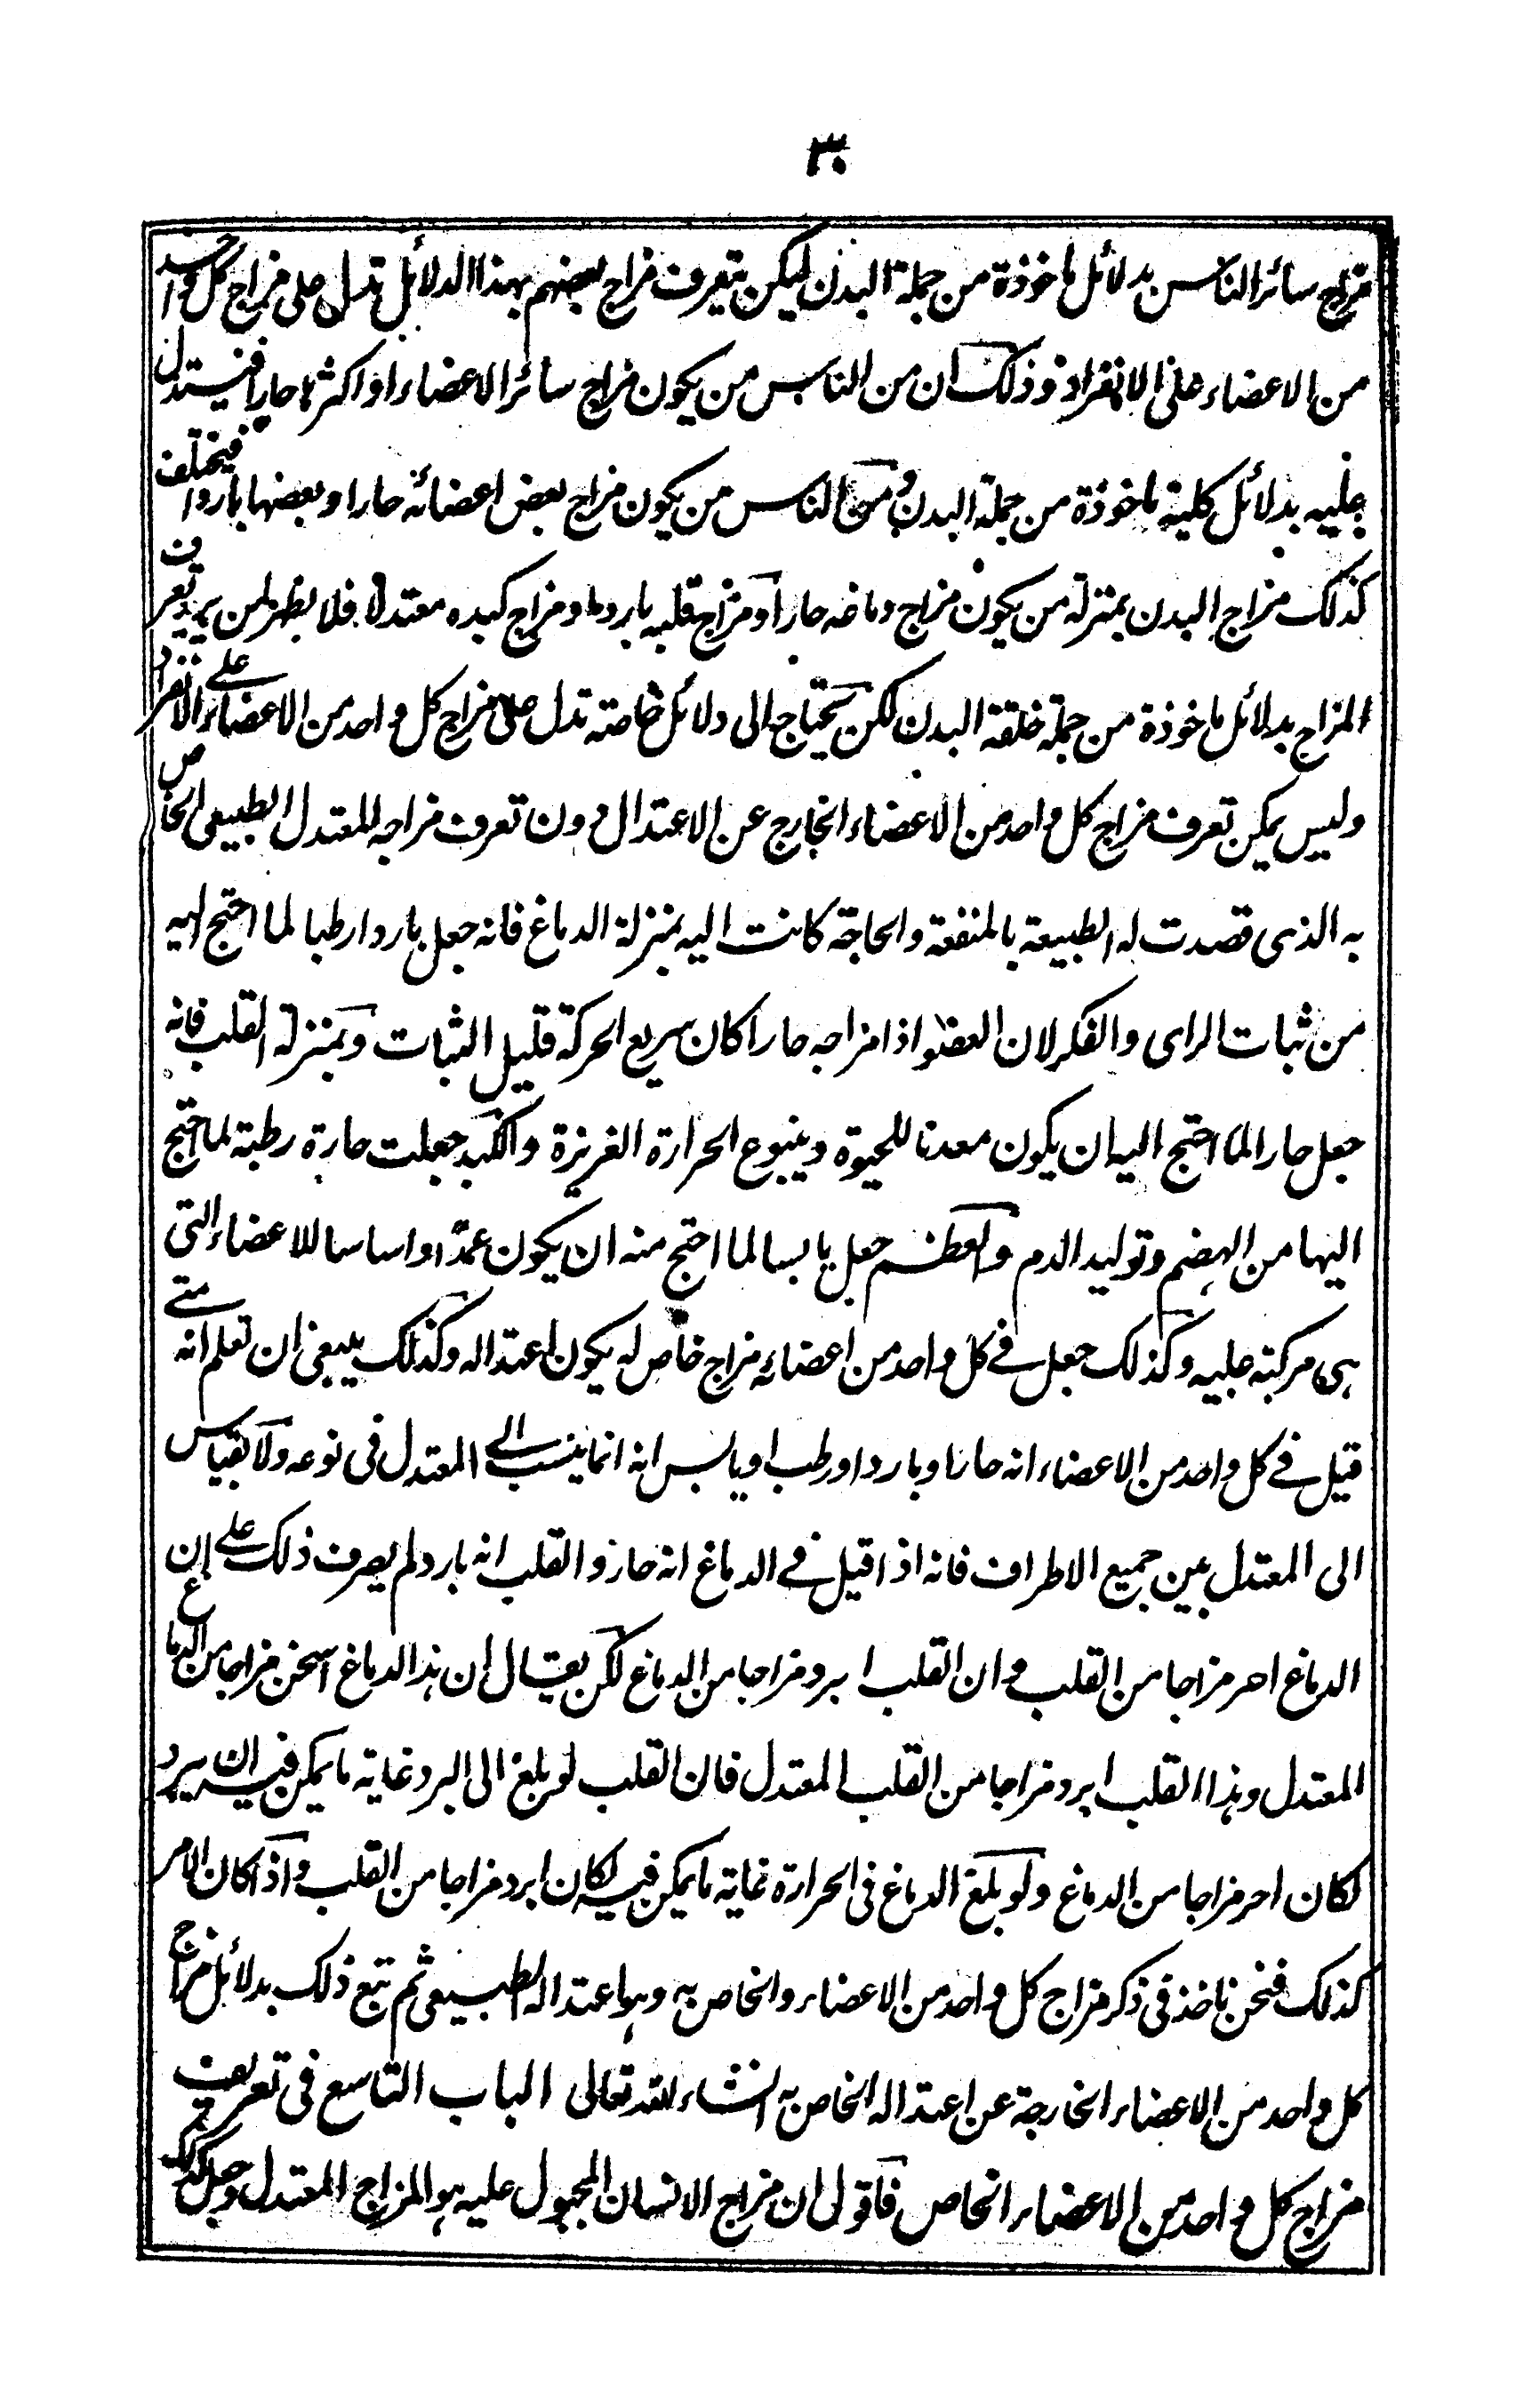 ٣٠
مزاج سائر الناس بدلائل ماخوذة من جملة البدن ليكن يتعرف مزاج بعضهم بهذا الدلائل تدل على مزاج كل واحد
من الاعضاء على الانفراد و ذلك ان من الناس من يكون مزاج سائر الاعضاء او اكثرها حارا فيستدل
عليه بدلائل كلية ماخوذة من جملة البدن و من الناس من يكون مزاج بعض اعضائه حارا و بعضها باردا فيختلف
كذلك مزاج البدن بمنزلة من يكون مزاج دماغه حارا و مزاج قلبه باردا و مزاج كبده معتدلا فلا يظهر لمن يريد تعرف
المزاج بدلائل ماخوذة من جملة خلقة البدن لكن يحتاج الى دلائل خاصته تدل على مزاج كل واحد من الاعضاء على الانفراد
وليس يمكن تعرف مزاج كل واحد من الاعضاء الخارج عن الاعتدال دون تعرف مزاجه المعتدل الطبيعى الخاص
به الذى قصدت له الطبيعة بالمنفعة والحاجة كانت اليه بمنزلة الدماغ فانه جعل باردا رطبا لما احتج اليه
من ثبات الراى والفكر لان العضو اذا مزاجه حارا كان سريع الحركة قليل الثبات و بمنزلة القلب فانه
جعل حارا لما احتج اليه ان يكون معدنا للحيوة وينبوع الحرارة الغريزة والكبد جعلت حارة رطبة لما احتج
اليها من الهضم وتوليد الدم والعظم جعل يابسا لما احتج منه ان يكون عمدا واساسا للاعضاء التى
هى مركبة عليه وكذلك جعل فے كل واحد من اعضائه مزاج خاص له يكون اعتداله وكذلك ينبغى ان تعلم انه متے
قيل فے كل واحد من الاعضاء انه حار او بارد او رطب او يابس انه انما ينسب الے المعتدل فى نوعه ولا يقياس
الى المعتدل بين جميع الاطراف فانه اذا قيل فے الدماغ انه حار و القلب انه بارد لم يصرف ذلك علے ان
الدماغ احر مزاجا من القلب و ان القلب ابرد مزاجا من الدماغ لكن يقال ان هذا الدماغ اسخن مزاجا من الدماغ
المعتدل و هذا القلب ابرد مزاجا من القلب المعتدل فان القلب لو بلغ الى البرد غاية ما يمكن فيه ان يبرد
لكان احر مزاجا من الدماغ ولو بلغ الدماغ فى الحرارة غاية ما يمكن فيه لكان ابرد مزاجا من القلب و اذا كان الامر
كذلك فنحن ناخذ فى ذكر مزاج كل واحد من الاعضاء والخاص به وهو اعتداله الطبيعى ثم نتبع ذلك بدلائل مزاج
كل واحد من الاعضاء الخارجة عن اعتداله الخاص به انشاء الله تعالى الباب التاسع فى تعريف
مزاج كل واحد من الاعضاء الخاص فاقول ان مزاج الانسان المجبول عليه هو المزاج المعتدل و جعل كذلك